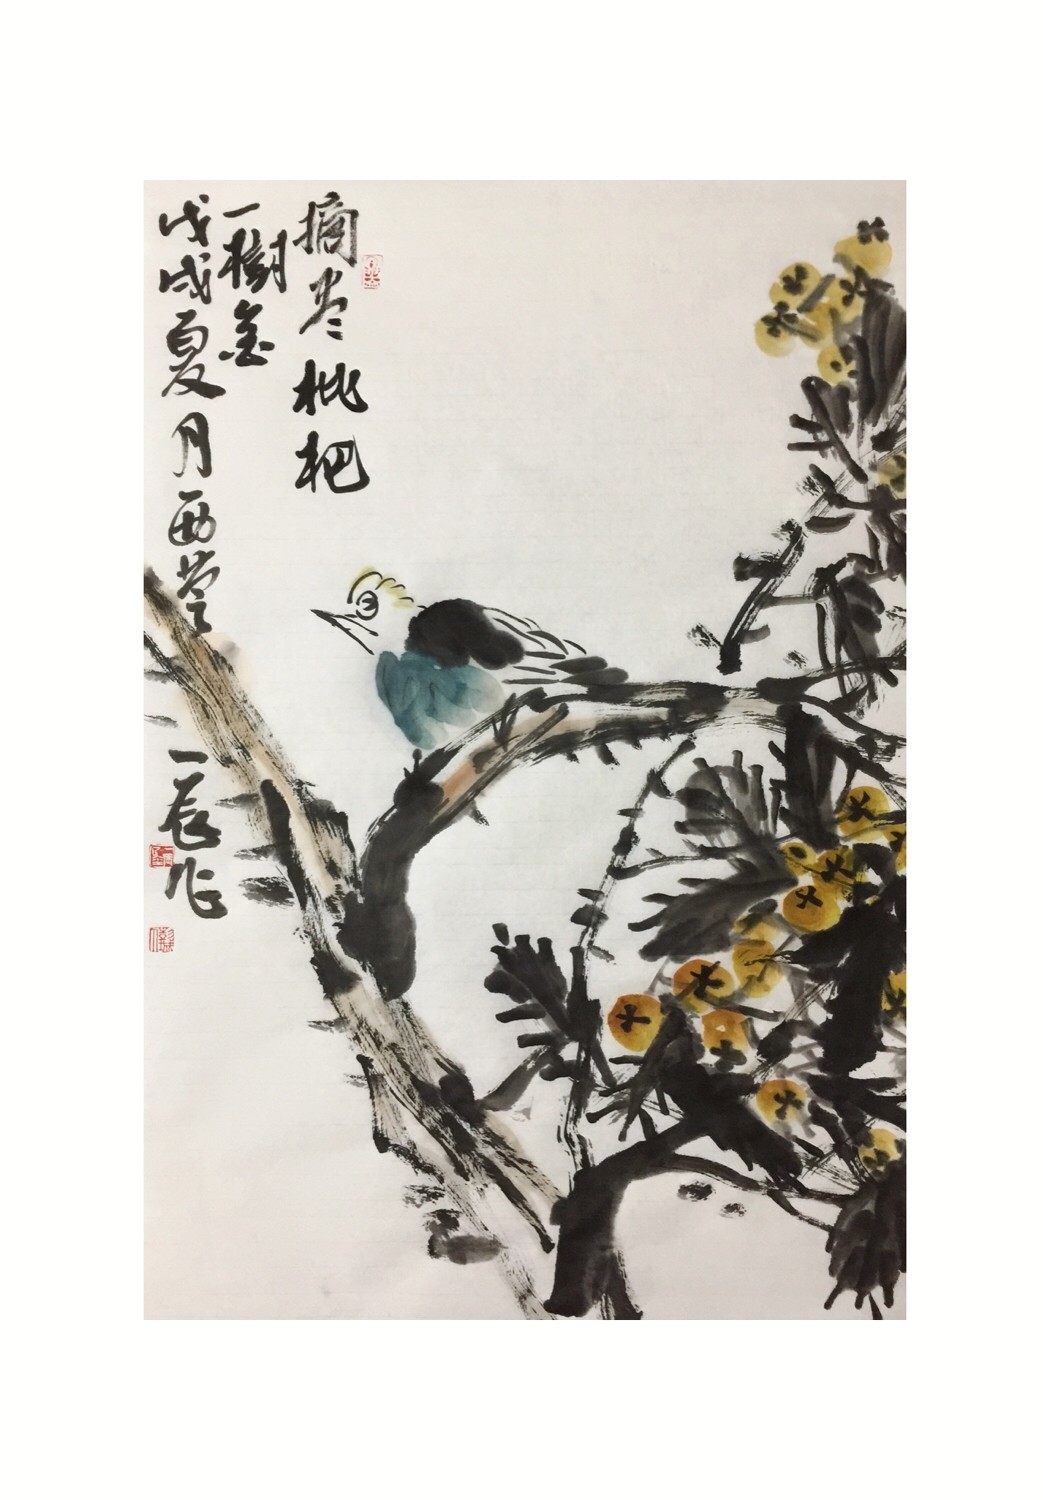 摘尽枇杷
一樹金
戊戌夏月西堂
一辰作